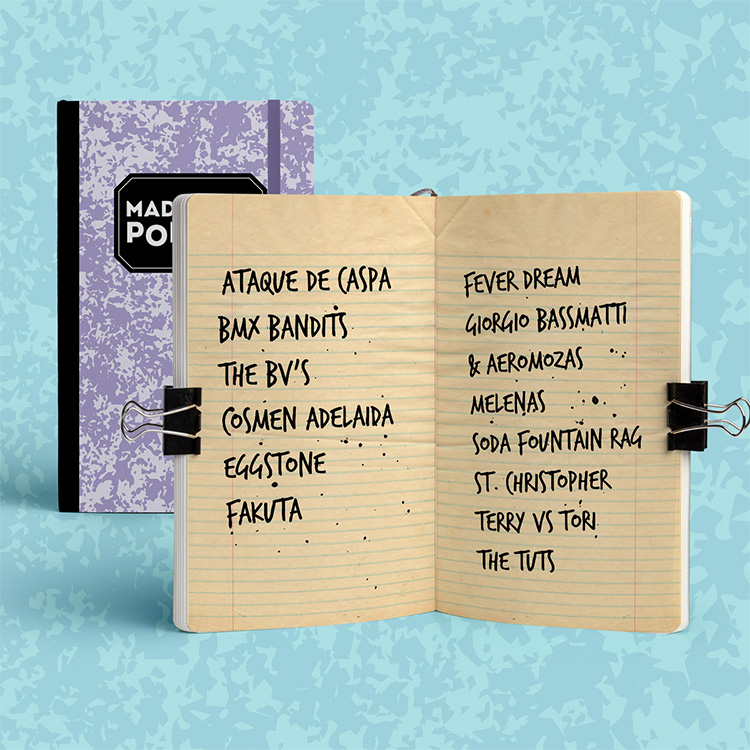 MAD
PO
ATAQUE DE CASPA
BMX BANDITS
THE BV'S
COSMEN ADELAIDA
EGGSTONE
FAKUTA
FEVER DREAM
GIORGIO BASSMATTI
& AEROMOZAS
MELENAS
SODA FOUNTAIN RAG
ST. CHRISTOPHER
TERRY VS TORI
THE TUTS